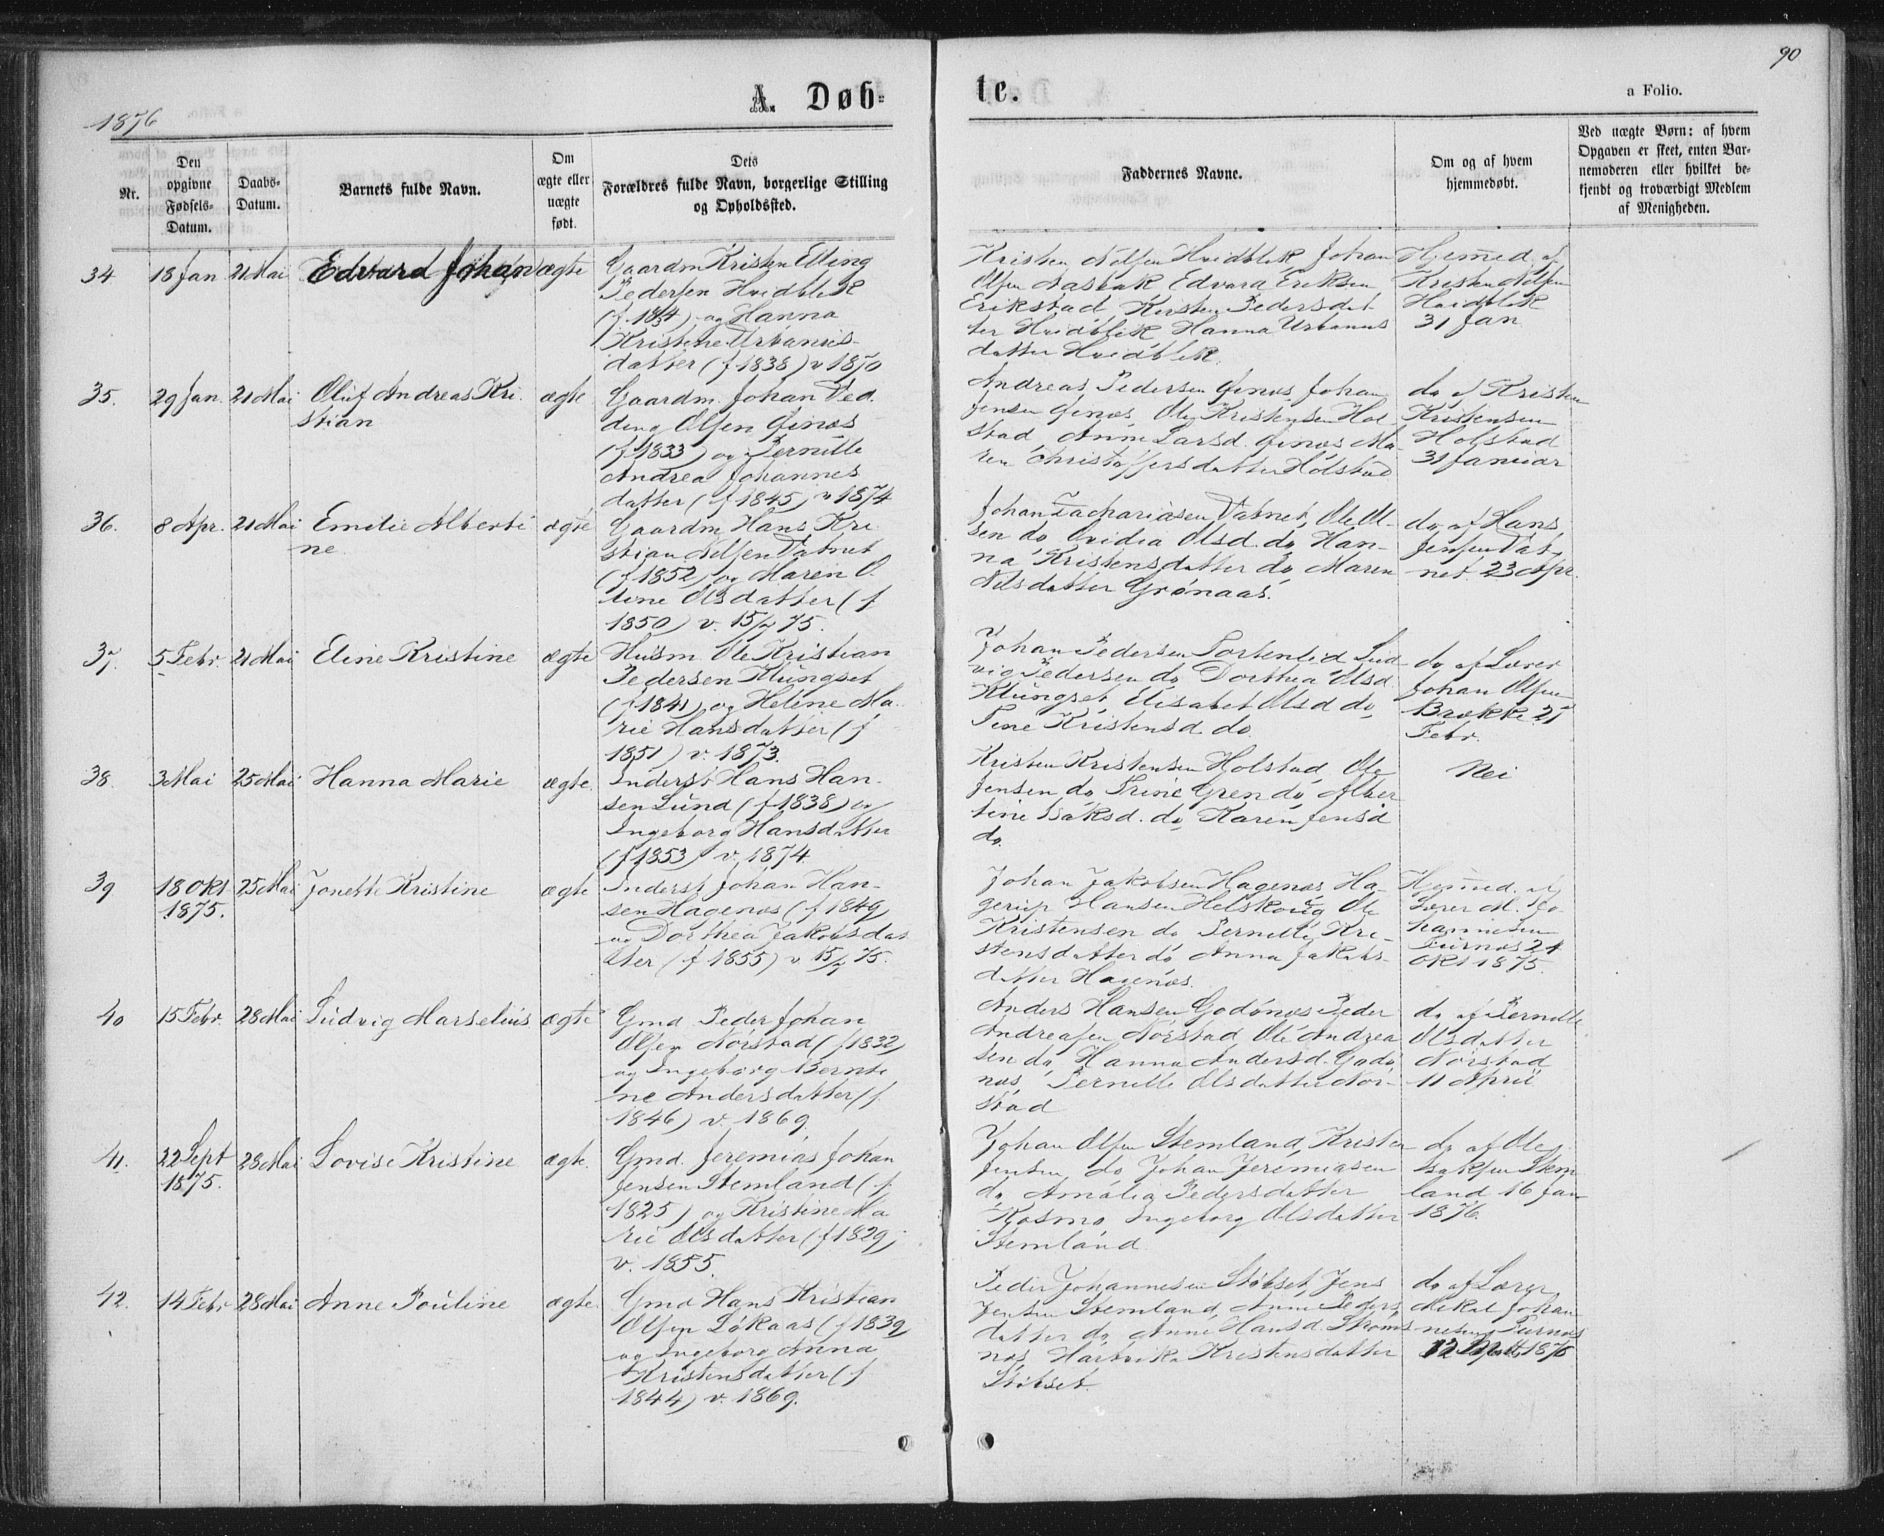 90
A. Døb-
te.
a Folio.
1876
Nr.
Den
opgivne
Fødsels-
Datum.
Daabs-
Datum.
Barnets fulde Navn.
Om
ægte eller
uægte
født.
Dets
Forældres fulde Navn, borgerlige Stilling
og Opholdssted.
Faddernes Navne.
Om og af hvem
hjemmedøbt.
Ved uægte Børn: af hvem
Opgaven er skeet, enten Bar-
nemoderen eller hvilket be-
kjendt og troværdigt Medlem
af Menigheden.
34
18 Jan
21 Mai
Edvard Johan
ægte
Gaardm Kristen Elling
Pedersen Hvidblik
og Hanna
Kristine Urbanus-
datter (f 1838) v 1870
Kristen Nilsen Hvidblik Johan
Olsen Edvard Eriksen
Erikstad Kirsten Pedersdat
ter Hvidblik Hanna Urbanus
datter Hvidblik.
Hjemmed. af
Kristen Nilsen
Hvidblik
31 Jan
35.
29 Jan.
21 Mai
Oluf Andreas Kri
stian
ægte
Gaardm. Johan Ved
ding Olsen Øinæs
(f 1833) og Pernille
Andrea Johannes
datter (f 1845) v 1874
Andreas Pedersen Øinæs, Johan
Jensen Øinæs, Ole Kristensen Hol-
stad, Anne Larsd. Øinæs Ma
ren Christoffersdatter Holstad
do af Kristen
Kristensen
Holstad
31 Januar
36.
8 Apr.
21 Mai
Emilie Alberti
ne
ægte
Gaardm. Hans Kri
stian Nilsen Vatnet
(f 1852) og Maren O.
line Olsdatter (f
1850) v. 15/7 75.
Johan Zachariasen Vatnet, Ole Ol-
sen do Ovidia Olsd. do, Han-
na Kristensdatter do, Maren
Nilsdatter Grønaas.
do af Hans
Jensen Vat-
net. 23 Apr.
37.
5 Febr
21 Mai
Eline Kristine
ægte
Husm. Ole Kristian
Pedersen Klungset
(f 1841) og Helene Ma.
rie Hansdatter (f
1851) v. 1873.
Johan Pedersen Lortenlid Lud
vig Pedersen do Dorthea Olsd
Klungset Elisabet Olsd do,
Sine Kristensd. do.
do af Lærer
Johan Olsen
Brække 25
Febr.
38.
3 Mai
25 Mai
Hanna Marie
ægte.
Inderst Hans Han-
sen Lund (f 1838) og
Ingeborg Hansdatter
(f 1853) v. 1874
Kristen Kristensen Holstad, Ole
Jensen do Trine Gren do, Alber
tine Isaksd. do, Karen Jensd
do.
Nei
39
18 Okt
1875.
25 Mai
Jonette Kristine
ægte
Inderst Johan Han-
sen Hagenæs (f 1849)
og Dorthea Jakobsdat
ter (f 1855) v 15/7 75.
Johan Jakobsen Hagenæs, Ha
gerup Hansen Helskoug Ole
Kristensen do Pernille Kri-
stensdatter do Anna Jakobs-
datter Hagenæs.
Hjemmed. af
Lærer M. Jo-
hannesen
Furnæs 24
Okt 1875.
40
15 Febr.
28 Mai
Ludvig Marselius
ægte
Gmd Peder Johan
Olsen Norstad (f 1832)
og Ingeborg Bernti
ne Andersdatter (f
1846) v. 1869
Anders Hansen Godønæs Peder
Andreasen Norstad Ole Andrea
sen do, Hanna Andersd. Godø
næs, Pernille Olsdatter Nor-
stad
do af Pernille
Olsdatter
Norstad
11 April
41.
22 Sept
1875.
28 Mai
Lovise Kristine
ægte.
Gmd. Jeremias Johan
Jensen Stemland (f
1825) og Kristine Ma
rie Olsdatter (f 1829)
v. 1855.
Johan Olsen Stemland, Kristen
Jensen do Johan Jeremiasen
do, Amalia Pedersdatter
Kosmo Ingeborg Olsdatter
Stemland
do af Ole
Isaksen Stem
land 16 Jan
1876.
42.
14 Febr
28 Mai
Anne Pouline
ægte.
Gmd Hans Kristian
Olsen Løkaas (f 1839)
og Ingeborg Anna
Kristensdatter (f
1844) v. 1869.
Peder Johannesen Støbset, Jens
Jensen Stemland, Anne Peders
datter do Anne Hansd. Strøms
næs Hartvika Kristensdatter
Støbset.
do af Lærer
Mikal Johan
nesen Furnæs
12 1876